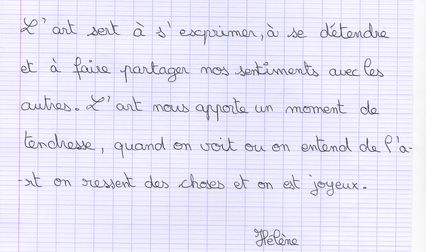 L'art sert à s'exprimer, à se détendre
et à faire partager nos sentiments avec les
autres. L'art nous apporte un moment de
tendresse, quand on voit ou on entend de l'a-
-rt on ressent des choses et on est joyeux.
Hélène